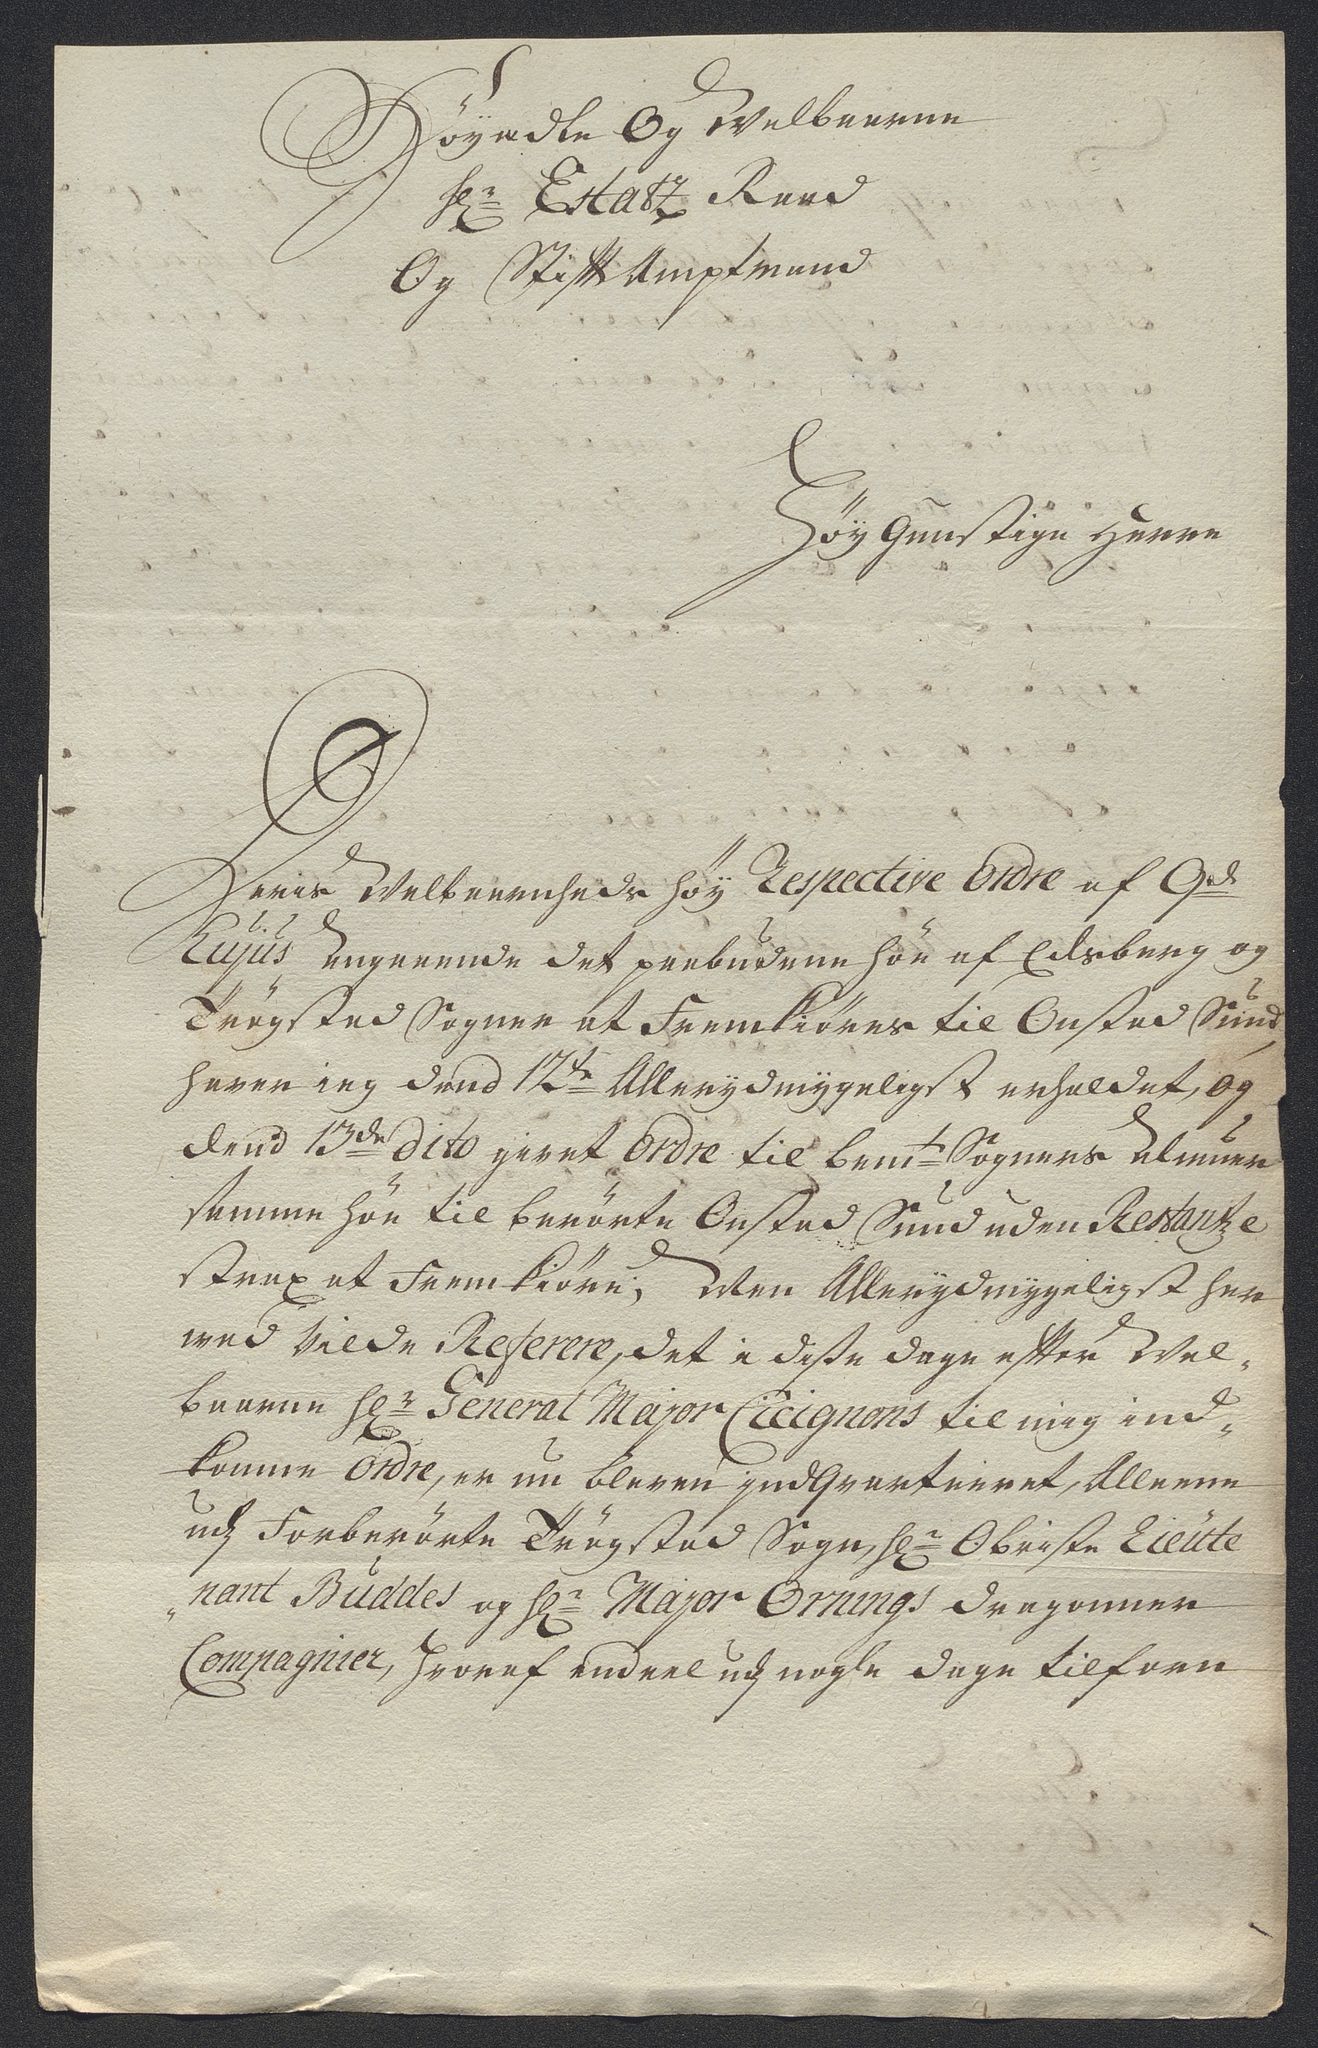 Höyædle Og Welbaarne
Hr Estatz Raad
Og Stifft Amptmand
Höy Gunstige Herre
Deris Welbaarenheds höy Respective Ordre af 9de
Hujus angaaende det paabudene höe af Edsberg og
Trögstad Sogner at Fremkiöres til Onstad Sund
haver ieg dend 12te Allerydmygeligst erholdet, og
dend 13de dito givet Ordre til bemte Sogners Almuer
samme höe til berörte Onstad Sund uden Restantze
strax at Fremkiöre; Men Allerydmygeligst her
ved vilde Referere, det i disse dage efter Wel-
baarne Hr General Major Cicignons til mig ind-
komne Ordre, er nu bleven indqvarteret, Alleene
udj Forberörte Trögstad Sogn, Hr Obriste Lieute
nant Buddes og Hr Major Ornings dragouner
Compagnier, hvoraf endeel udj nogle dage tilforn